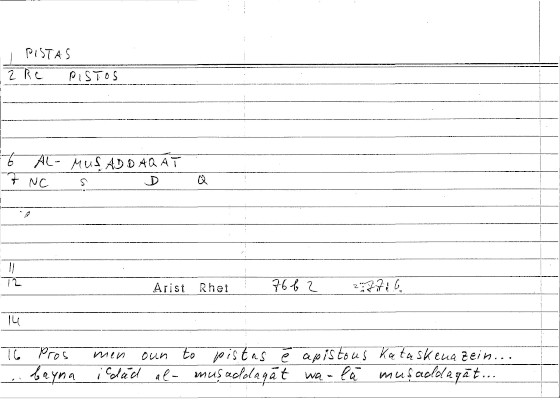 1 PISTAS
2 RC PISTOS
6 AL- MUṢADDAQĀT
7 NC Ṣ D Q
11
12 Arist Rhet 76b2
14
16 Pros men oun to pistas ē apistous Kataskeuazein...
.. bayna iʿdād al- muṣaddaqāt wa-lā muṣaddaqāt...